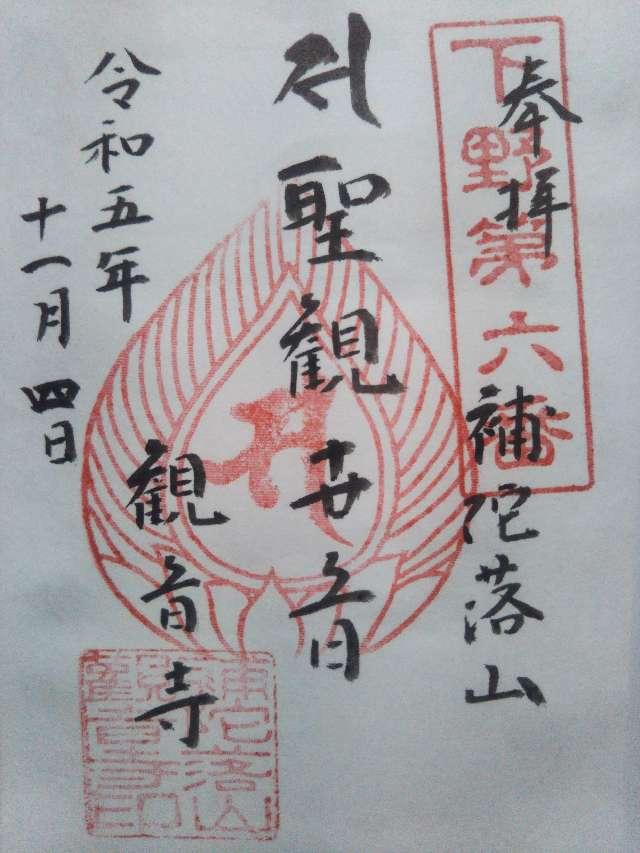 奉拝
下野第六番
補陀落山
聖観世音
観音寺
令和五年
十一月四日
補陀落山
観音寺印